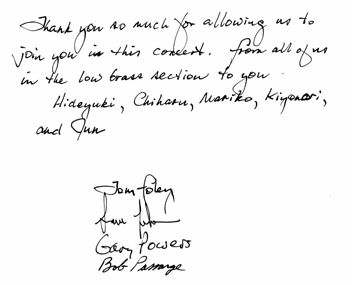 Thank you so much for allowing us to
join you in this concert. From all of us
in the low brass section to you.
Hideyuki, Chiharu, Mariko, Kiyonori,
and Jun
Tom Foley
Gary Powers
Bob Passarge